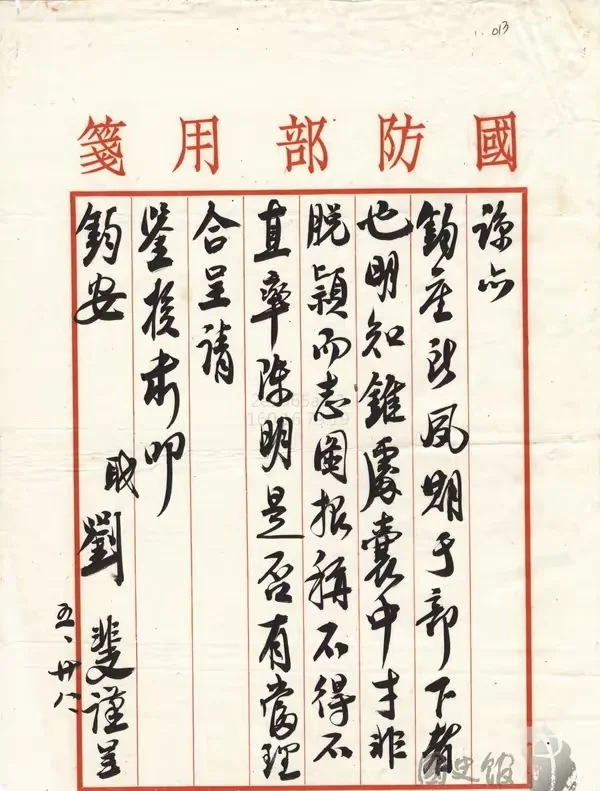 013
國防部用箋
諒亦
鈞座所夙期于部下者
也明知錐處囊中才非
脫穎而志圖報稱不得不
直率陳明是否有當理
合呈請
鑒核肅叩
鈞安
職劉斐謹呈
五、廿八
國史館